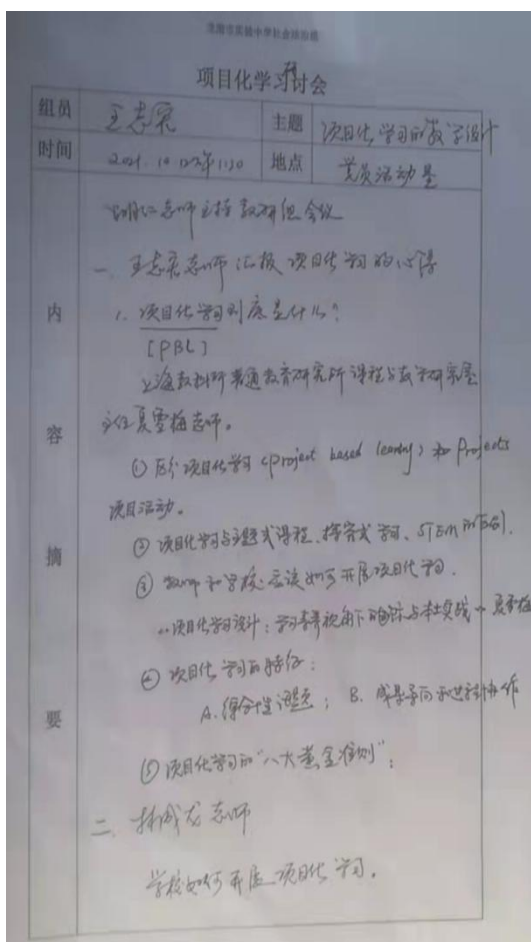 龙海市实验中学社会政治组
项目化学习研讨会
组员 王志宏 主题 项目化学习的教学设计
时间 2021.10.12 1:20 地点 党员活动室
内容摘要
老师主持教研组会议
一、王志宏老师汇报项目化学习的心得
1. 项目化学习到底是什么?
[PBL]
上海教科所普通教育研究所课程与教学研究室
主任夏雪梅老师。
① 区分项目化学习 (project based learning) 和 projects
项目活动。
② 项目化学习与主题式课程、探究式学习、STEM的区别.
③ 教师和学校应该如何开展项目化学习.
《项目化学习设计:学习素养视角下的国际与本土实践》 夏雪梅
④ 项目化学习的特征:
A. 综合性课题; B. 成果导向和进行协作
⑤ 项目化学习的“八大黄金准则”;
二、林成龙老师
学校如何开展项目化学习.